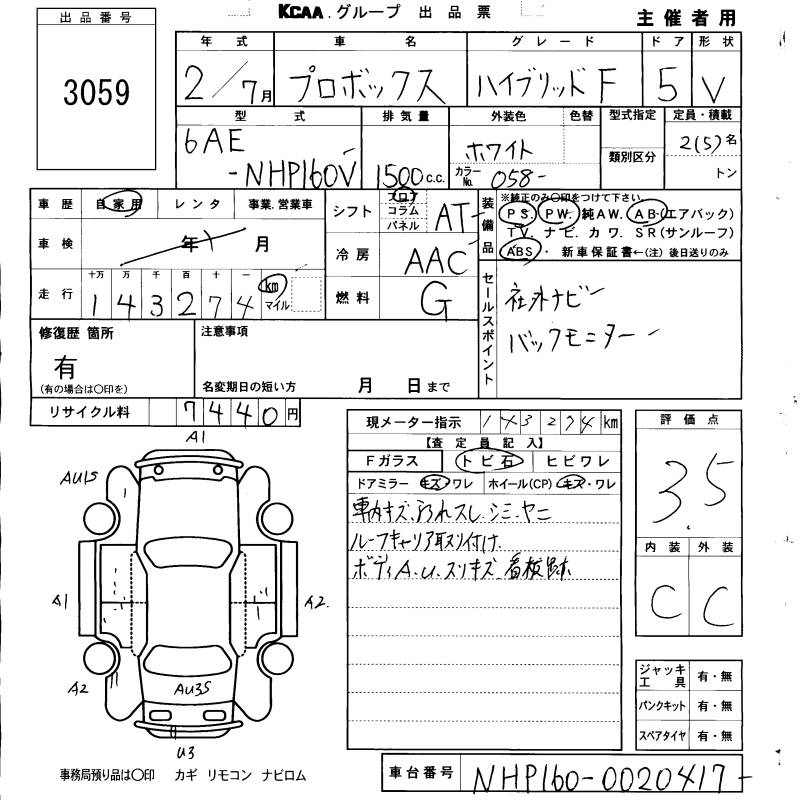 出品番号
3059
KCAA グループ 出品票
主催者用
年式 車名 グレード ドア 形状
2/7月 プロボックス ハイブリッドF 5 V
型式 排気量 外装色 色替 型式指定 定員・積載
6AE
-NHP160V 1500c.c. ホワイト 2(5)名
カラーNo. 058- 類別区分 トン
車歴 自家用 レンタ 事業.営業車
車検 年 月
走行 十万 万 千 百 十 一
143274 km マイル
シフト フロア コラム パネル AT-
冷房 AAC
燃料 G
装備品 ※純正のみ〇印をつけて下さい
PS. PW. 純AW. AB(エアバック)
TV. ナビ. カワ. SR(サンルーフ)
ABS. ・ 新車保証書←(注) 後日送りのみ
セールスポイント
社外ナビー
バックモニター
修復歴 箇所
有
(有の場合は〇印を)
注意事項
名変期日の短い方 月 日まで
リサイクル料 7440円
現メーター指示 143274km
【査定員記入】
Fガラス トビ石 ヒビワレ
ドアミラー キズ・ワレ ホイール(CP) キズ・ワレ
車内キズ.汚れスレ.シミ.ヤニ
ルーフキャリア取り付け
ボディA.U.スリキズ 看板跡
評価点
3.5
内装 外装
C C
ジャッキ工具 有・無
パンクキット 有・無
スペアタイヤ 有・無
A1
AU1S
A1
A2
A2
AU3S
U3
事務局預り品は〇印 カギ リモコン ナビロム
車台番号 NHP160-0020417-